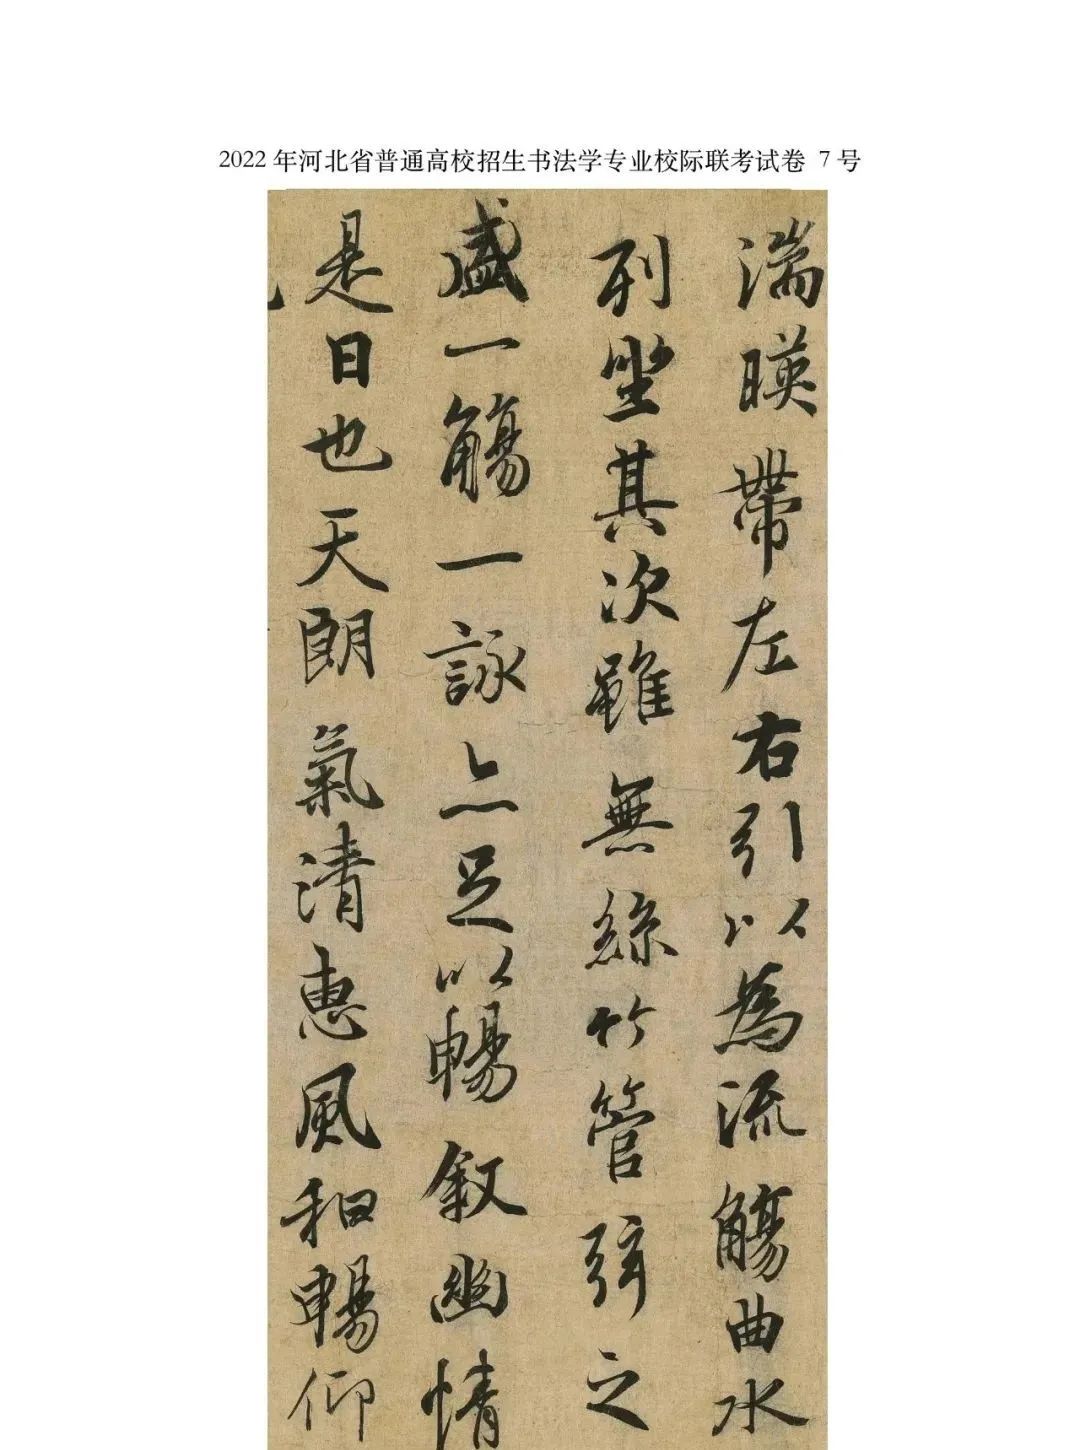 2022 年河北省普通高校招生书法学专业校际联考试卷 7 号
湍暎帶左右引以為流觴曲水
列坐其次雖無絲竹管弦之
盛一觴一詠亦足以暢敘幽情
是日也天朗氣清惠風和暢仰